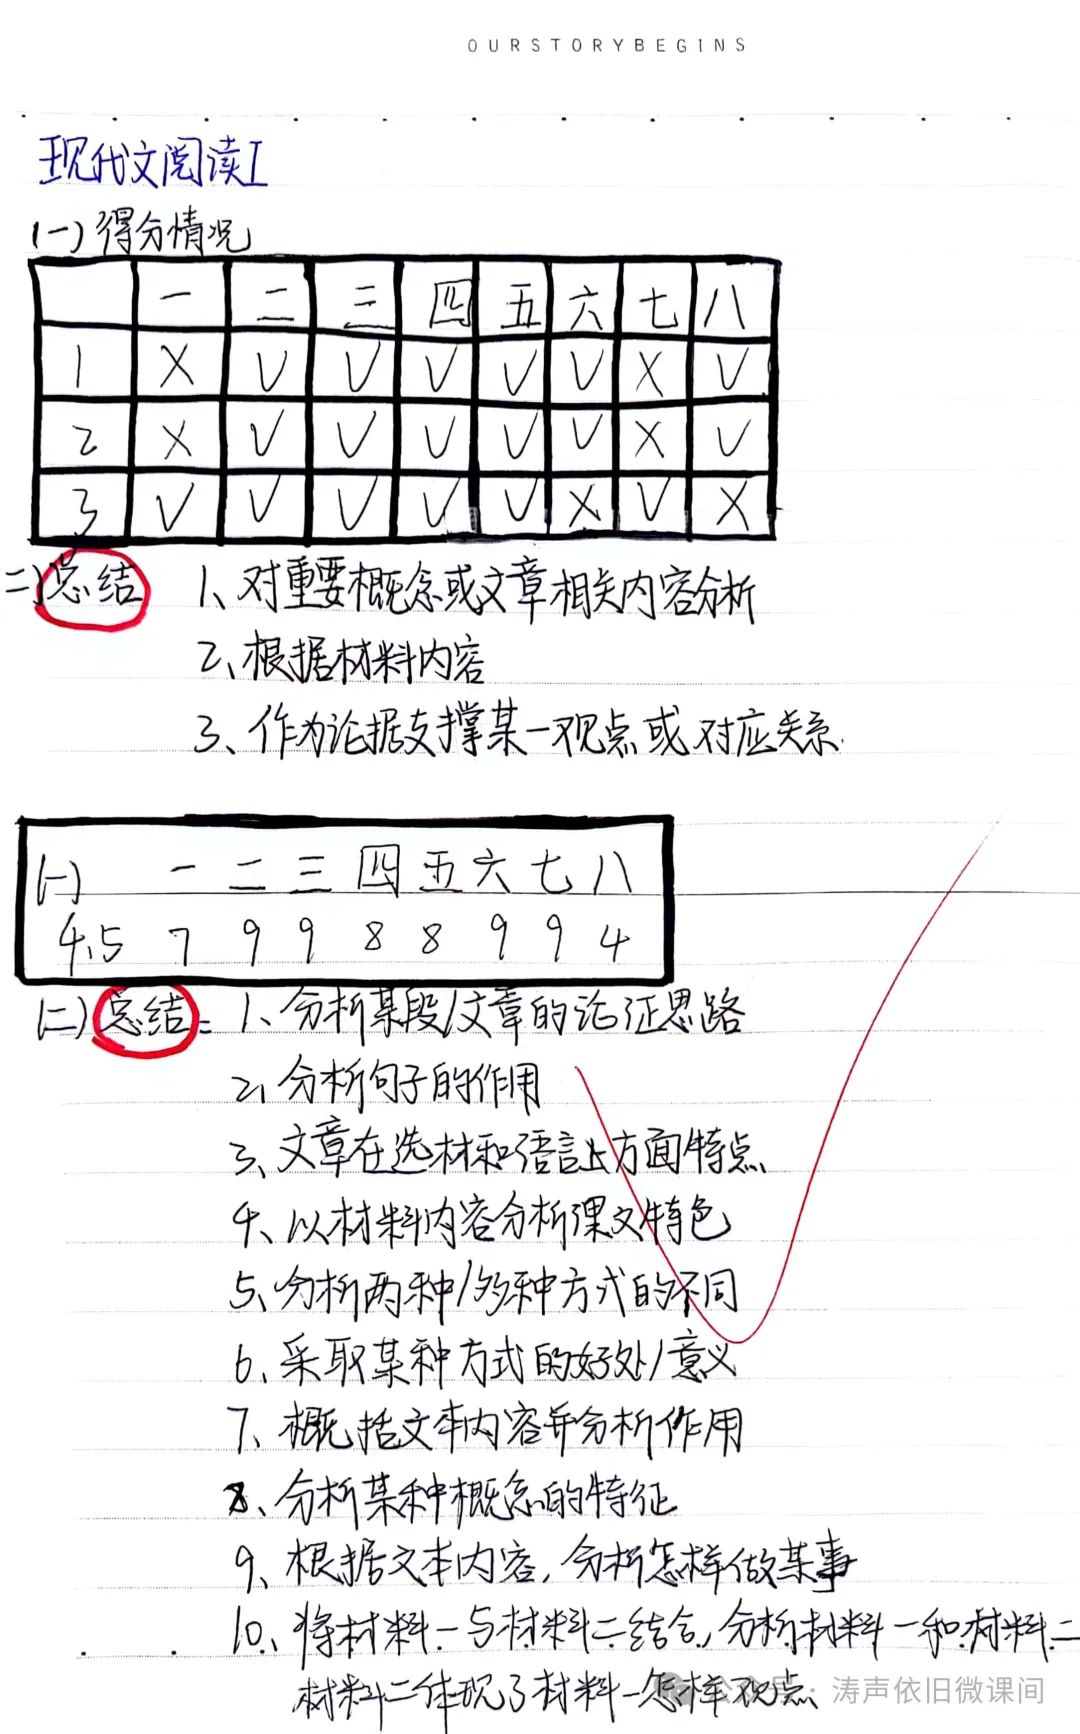 OURSTORYBEGINS
现代文阅读I
(一)得分情况
一 二 三 四 五 六 七 八
1 X V V V V V X V
2 X V V V V V X V
3 V V V V V X V X
二)总结 1、对重要概念或文章相关内容分析
2、根据材料内容
3、作为论据支撑某一观点或对应关系.
(一) 一 二 三 四 五 六 七 八
4、5 7 9 9 8 8 9 9 4
(二)总结: 1、分析某段/文章的论证思路
2、分析句子的作用
3、文章在选材和语言上方面特点、
4、以材料内容分析课文特色
5、分析两种/多种方式的不同
6、采取某种方式的好处/意义
7、概括文本内容并分析作用
8、分析某种概念的特征
9、根据文本内容,分析怎样做某事
10、将材料一与材料二结合,分析材料一和材料二
材料二体现了材料一怎样观点、
公众号:涛声依旧微课间